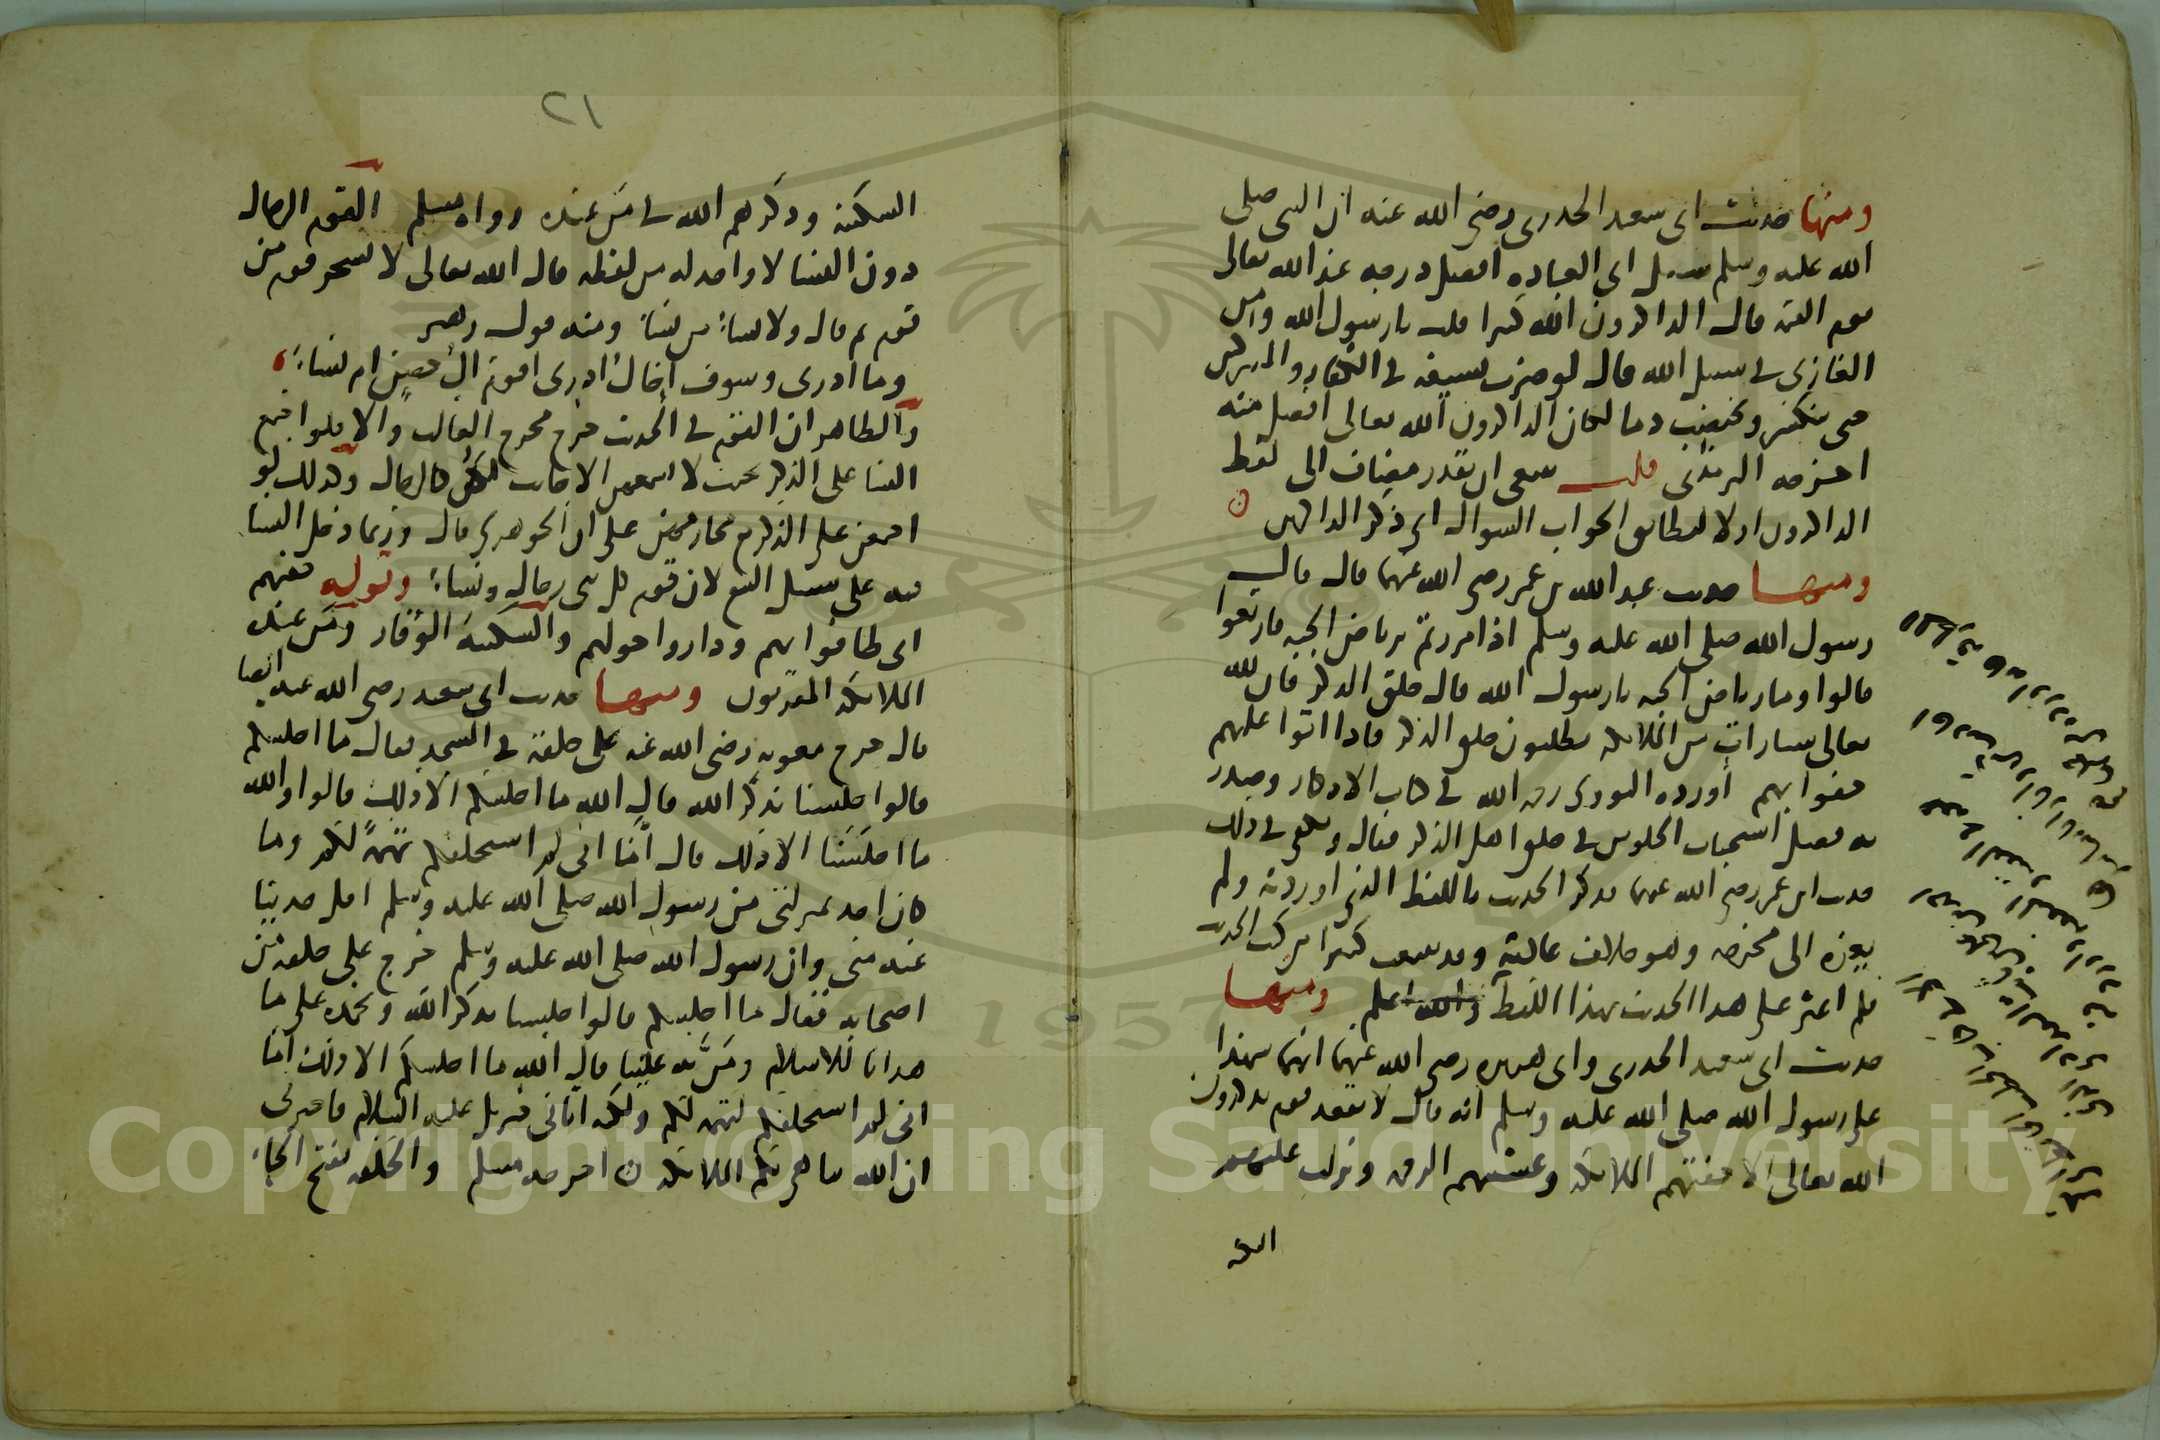 ومنها حديث ابى سعيد الخدرى رضى الله عنه ان النبى صلى
الله عليه وسلم سئل اى العباده افضل درجه عند الله تعالى
يوم القيمه قال الذاكرون الله كثيرا قلت يا رسول الله ومن
الغازى فى سبيل الله قال لو ضرب بسيفه فى الكفار والمشركين
حتى ينكسر ويختضب دما لكان الذاكرون الله تعالى افضل منه
اخرجه الترمذى قلت ينبغى ان يقدر مضاف الى لفظ
الذاكرون اولا ليطابق الجواب السوال اى ذكر الذاكرين
ومنها حديث عبد الله بن عمر رضى الله عنهما قال قال
رسول الله صلى الله عليه وسلم اذا مررتم برياض الجنه فارتعوا
قالوا وما رياض الجنه يا رسول الله قال حلق الذكر فان لله
تعالى سيارات من الملائكه يطلبون حلق الذكر فاذا اتوا عليهم
حفوا بهم اورده النووى رحمه الله فى كتاب الاذكار وصدر
به فصل استحباب الجلوس فى حلق اهل الذكر فقال وتكفى فى ذلك
حديث ابن عمر رضى الله عنهما فذكر الحديث باللفظ الذى اوردته ولم
يعزه الى مخرجه وهو خلاف عادته وقد تتبعت كثيرا من كتب الحديث
فلم اعثر على هذا الحديث بهذا اللفظ والله اعلم ومنها
حديث ابى سعيد الخدرى وابى هريره رضى الله عنهما انهما شهدا
على رسول الله صلى الله عليه وسلم انه قال لا يقعد قوم يذكرون
الله تعالى الا حفتهم الملائكه وغشيتهم الرحمه ونزلت عليهم
السكينه
٢١
السكينه وذكرهم الله فى من عنده رواه مسلم القوم الرجال
دون النسا لا واحد له من لفظه قال الله تعالى لا يسخر قوم من
قوم ثم قال ولا نساء من نساء ومنه قول زهير
وما ادرى وسوف اخال ادرى اقوم ال حصن ام نساء
والظاهر ان القوم فى الحديث خرج مخرج الغالب والا فلو اجتمع
النسا على الذكر بحيث لا الاجانب لكن كالرجال وكذلك لو
اجتمعن على الذكر مع محارمهن على ان الجوهرى قال وربما دخل النسا
فيه على سبيل التبع لان قوم كل نبى رجال ونساء وقوله حفتهم
اى طافوا بهم وداروا حولهم والسكينه الوقار ومن عنده
الملائكه المقربون ومنها حديث ابى سعيد رضى الله عنه ايضا
قال خرج معويه رضى الله عنه على حلقه فى المسجد فقال ما اجلسكم
قالوا جلسنا نذكر الله قال الله ما اجلسكم الا ذلك قالوا والله
ما اجلسنا الا ذلك قال أما انى لم استحلفكم تهمة لكم وما
كان احد بمنزلتى من رسول الله صلى الله عليه وسلم اقل حديثا
عنه منى وان رسول الله صلى الله عليه وسلم خرج على حلقه من
اصحابه فقال ما اجلسكم قالوا جلسنا نذكر الله ونحمده على ما
هدانا للاسلام ومنَّ به علينا قال الله ما اجلسكم الا ذلك أما
انى لم استحلفكم لتهمه لكم ولكنه اتانى جبريل عليه السلام فاخبرنى
ان الله يباهى بكم الملائكه اخرجه مسلم والحلقه بفتح الحاء
Copyright © King Saud University
1957